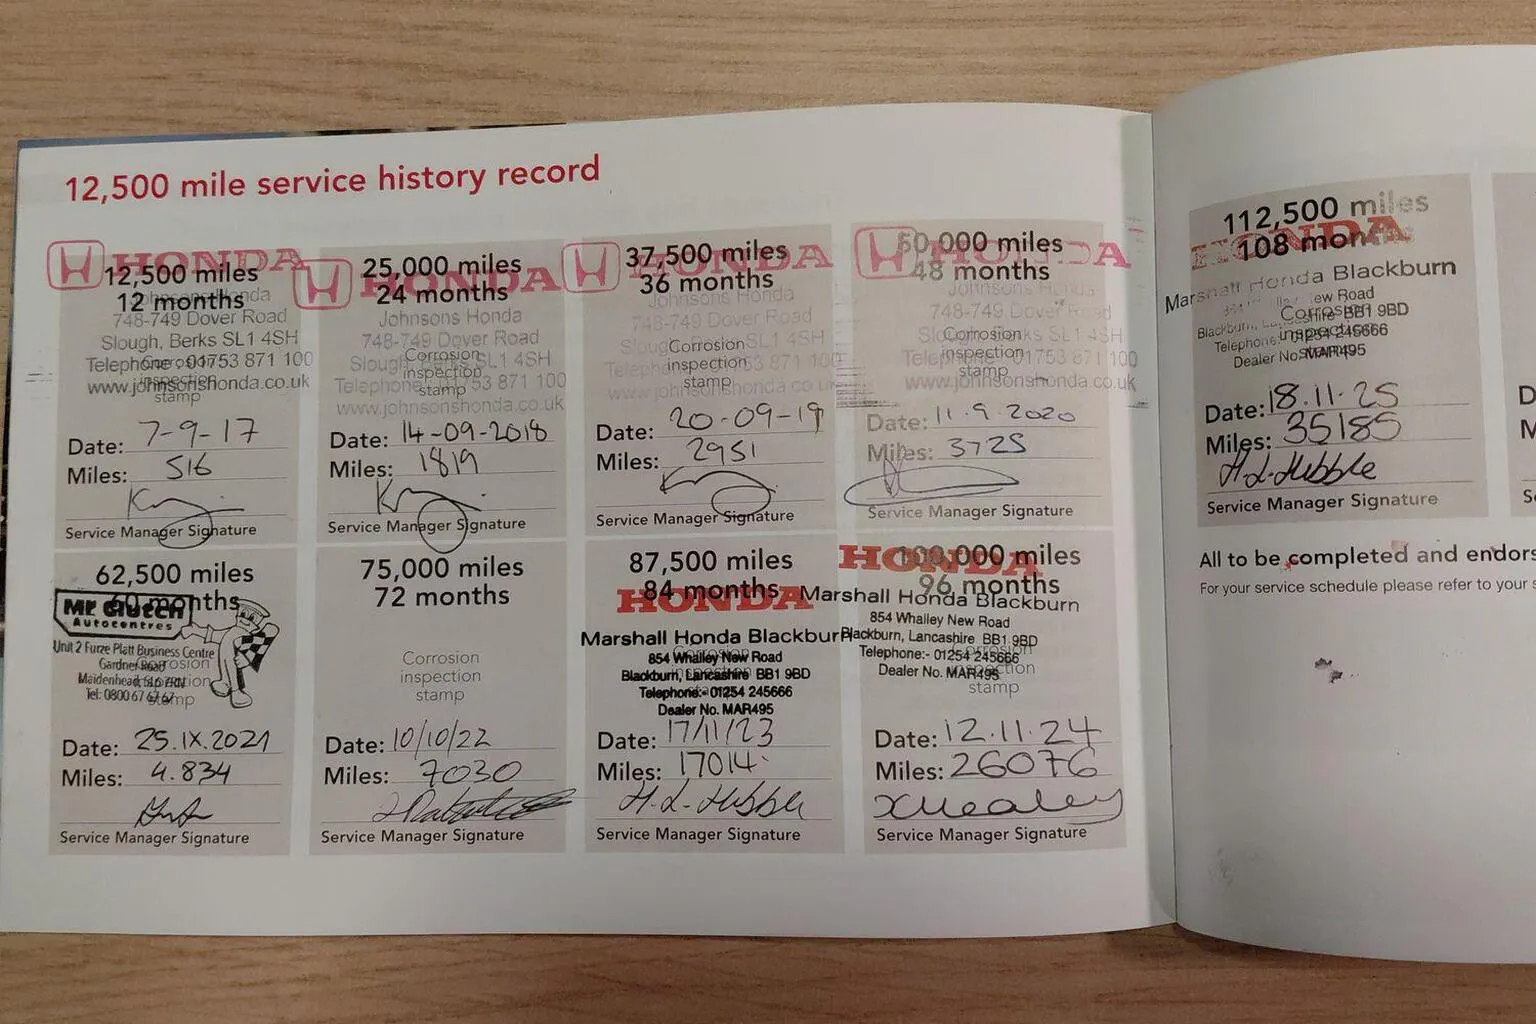 12,500 mile service history record
HONDA
12,500 miles
12 months
Johnsons Honda
748-749 Dover Road
Slough, Berks SL1 4SH
Telephone: 01753 871 100
www.johnsonshonda.co.uk
Corrosion
inspection
stamp
Date: 7-9-17
Miles: 516
Service Manager Signature
HONDA
25,000 miles
24 months
Johnsons Honda
748-749 Dover Road
Slough, Berks SL1 4SH
Telephone: 01753 871 100
www.johnsonshonda.co.uk
Corrosion
inspection
stamp
Date: 14-09-2018
Miles: 1819
Service Manager Signature
HONDA
37,500 miles
36 months
Johnsons Honda
748-749 Dover Road
Slough, Berks SL1 4SH
Telephone: 01753 871 100
www.johnsonshonda.co.uk
Corrosion
inspection
stamp
Date: 20-09-19
Miles: 2951
Service Manager Signature
HONDA
50,000 miles
48 months
Johnsons Honda
748-749 Dover Road
Slough, Berks SL1 4SH
Telephone: 01753 871 100
www.johnsonshonda.co.uk
Corrosion
inspection
stamp
Date: 11.9.2020
Miles: 3725
Service Manager Signature
62,500 miles
60 months
Mr Clutch
Autocentres
Unit 2 Furze Platt Business Centre
Gardner Road
Maidenhead SL6 7RN
Tel: 0800 67 67 67
Corrosion
inspection
stamp
Date: 25.IX.2021
Miles: 4.834
Service Manager Signature
75,000 miles
72 months
Corrosion
inspection
stamp
Date: 10/10/22
Miles: 7030
Service Manager Signature
87,500 miles
84 months
HONDA
Marshall Honda Blackburn
854 Whalley New Road
Blackburn, Lancashire BB1 9BD
Telephone:- 01254 245666
Dealer No. MAR495
Date: 17/11/23
Miles: 17014
H.L. Hubble
Service Manager Signature
HONDA
100,000 miles
96 months
Marshall Honda Blackburn
854 Whalley New Road
Blackburn, Lancashire BB1 9BD
Telephone:- 01254 245666
Dealer No. MAR495
Corrosion
inspection
stamp
Date: 12.11.24
Miles: 26076
Service Manager Signature
112,500 miles
108 months
HONDA
Marshall Honda Blackburn
New Road
Blackburn, Lancashire BB1 9BD
Telephone:- 01254 245666
Dealer No. MAR495
Corrosion
inspection
stamp
Date: 18.11.25
Miles: 35185
H.L. Hubble
Service Manager Signature
All to be completed and endors
For your service schedule please refer to your s
D
M
S